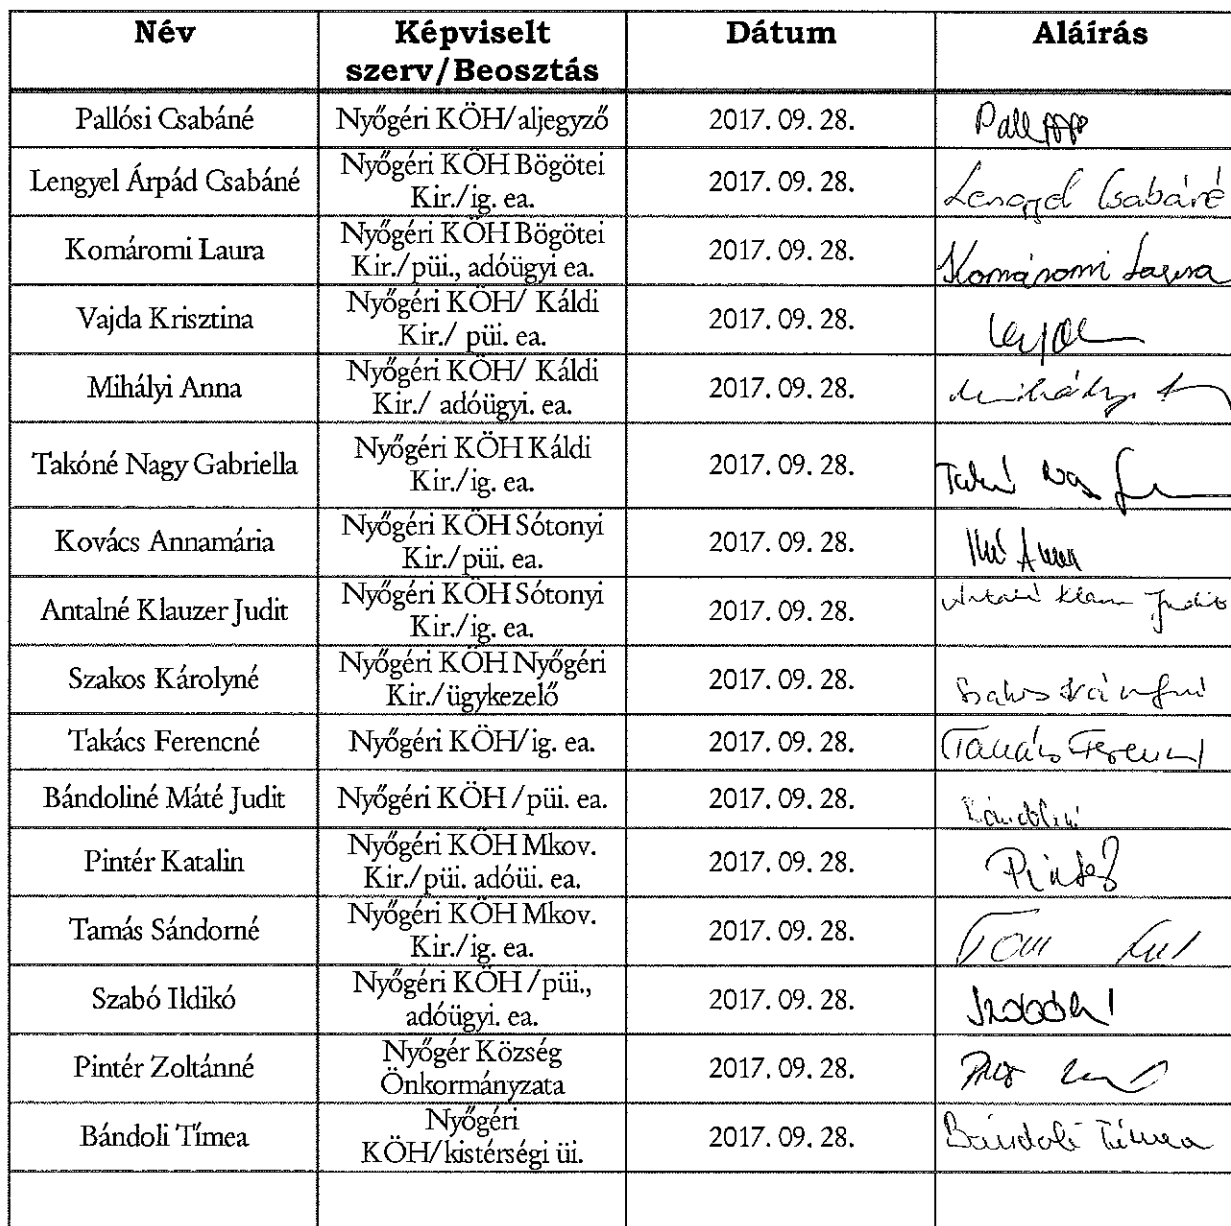 Név Képviselt szerv/Beosztás Dátum Aláírás
Pallósi Csabáné Nyőgéri KÖH/aljegyző 2017. 09. 28.
Lengyel Árpád Csabáné Nyőgéri KÖH Bögötei Kir./ig. ea. 2017. 09. 28. Lengyel Csabáné
Komáromi Laura Nyőgéri KÖH Bögötei Kir./püi., adóügyi ea. 2017. 09. 28. Komáromi Laura
Vajda Krisztina Nyőgéri KÖH/ Káldi Kir./ püi. ea. 2017. 09. 28.
Mihályi Anna Nyőgéri KÖH/ Káldi Kir./ adóügyi. ea. 2017. 09. 28. Mihályi
Takóné Nagy Gabriella Nyőgéri KÖH Káldi Kir./ig. ea. 2017. 09. 28.
Kovács Annamária Nyőgéri KÖH Sótonyi Kir./püi. ea. 2017. 09. 28.
Antalné Klauzer Judit Nyőgéri KÖH Sótonyi Kir./ig. ea. 2017. 09. 28. Antalné Judit
Szakos Károlyné Nyőgéri KÖH Nyőgéri Kir./ügykezelő 2017. 09. 28. Szakos Károlyné
Takács Ferencné Nyőgéri KÖH/ig. ea. 2017. 09. 28. Takács Ferencné
Bándoliné Máté Judit Nyőgéri KÖH /püi. ea. 2017. 09. 28. Bándoliné
Pintér Katalin Nyőgéri KÖH Mkov. Kir./püi. adóüi. ea. 2017. 09. 28. Pintér
Tamás Sándorné Nyőgéri KÖH Mkov. Kir./ig. ea. 2017. 09. 28.
Szabó Ildikó Nyőgéri KÖH /püi., adóügyi. ea. 2017. 09. 28.
Pintér Zoltánné Nyőgér Község Önkormányzata 2017. 09. 28.
Bándoli Tímea Nyőgéri KÖH/kistérségi üi. 2017. 09. 28. Bándoli Tímea